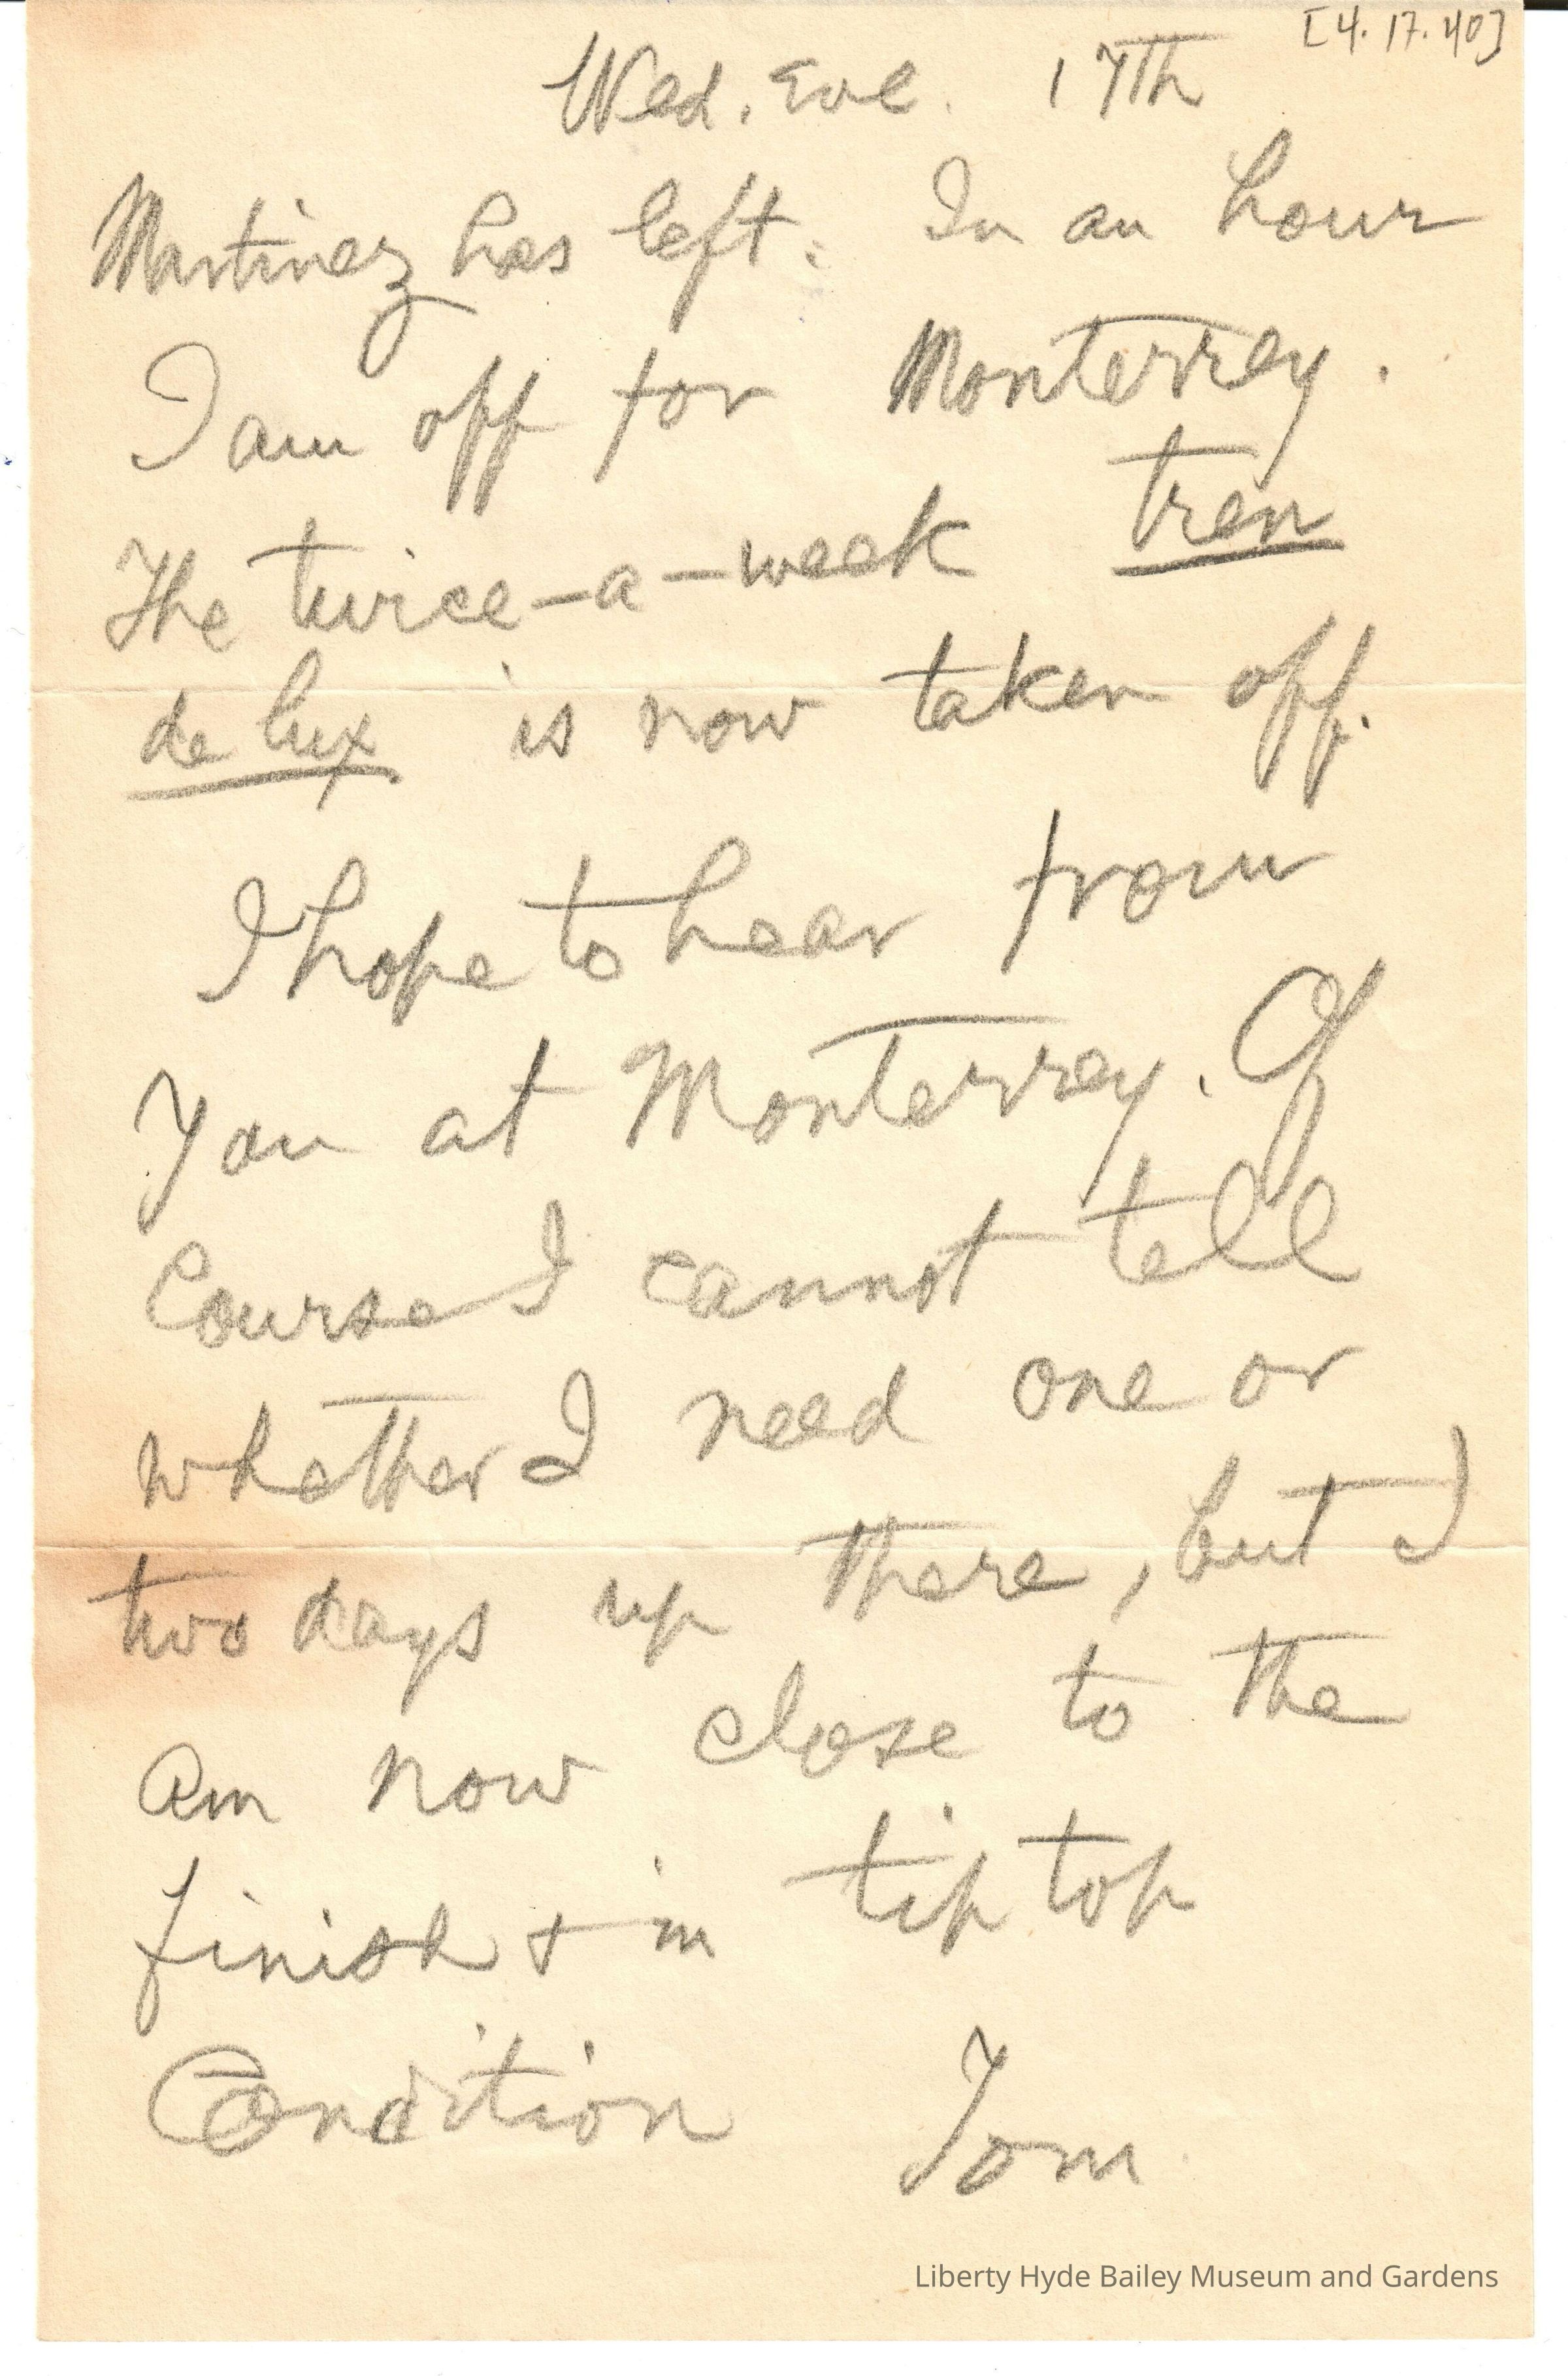 [4.17.40]
Wed. Eve. 17th
Martinez has left. In an hour
I am off for Monterrey.
The twice-a-week tren
de lux is now taken off.
I hope to hear from
you at Monterrey. Of
Course I cannot tell
whether I need one or
two days up there, but I
am now close to the
finish & in tip top
Condition Tom
Liberty Hyde Bailey Museum and Gardens